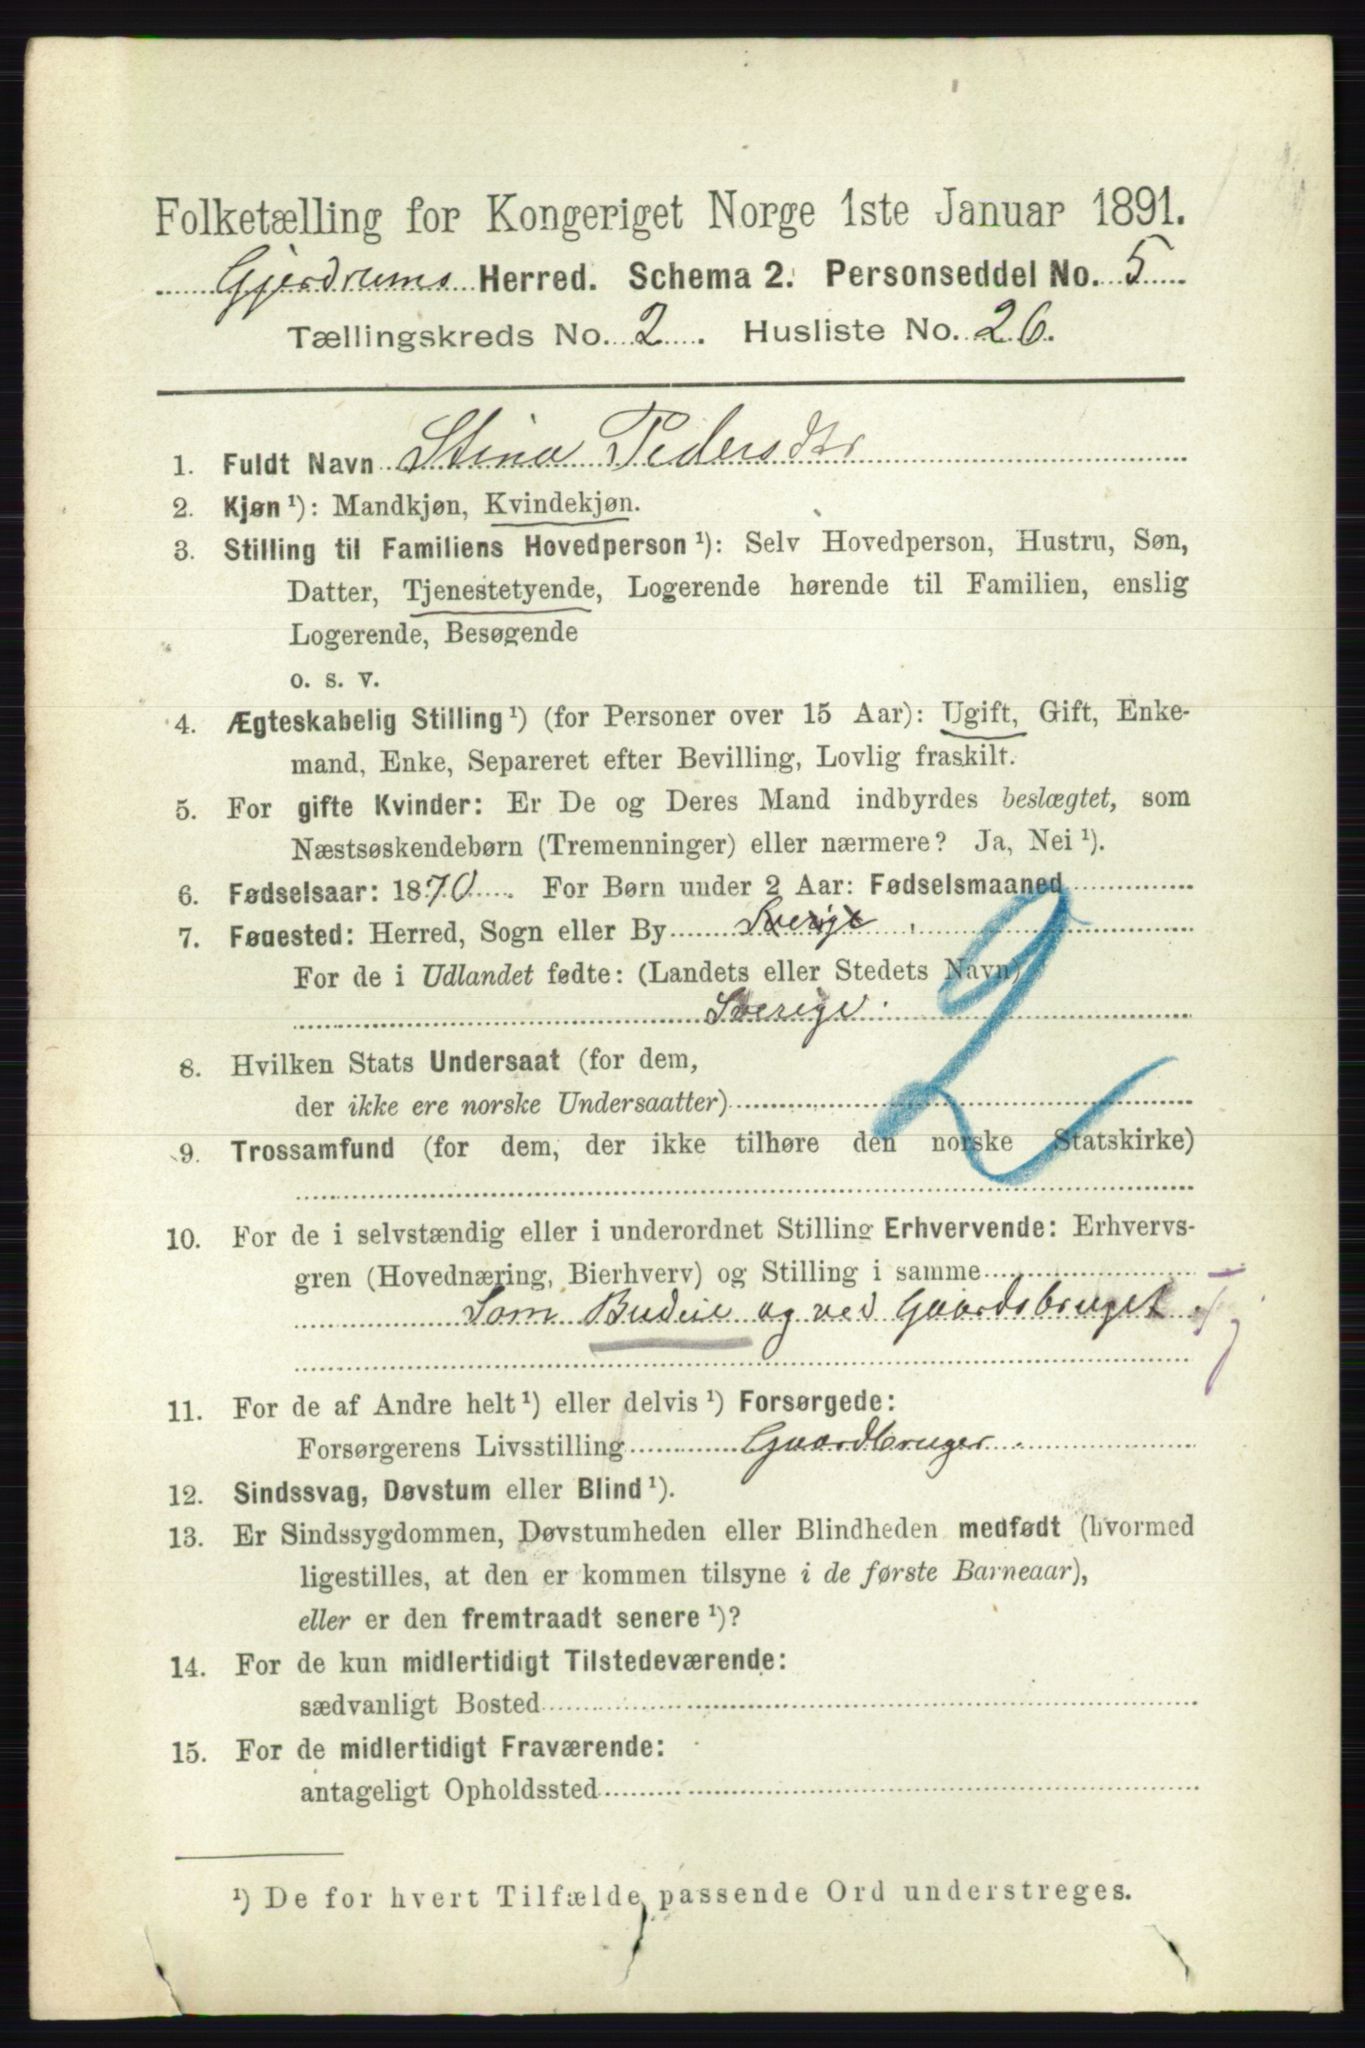 Folketælling for Kongeriget Norge 1ste Januar 1891.
Gjerdrums Herred. Schema 2. Personseddel No. 5
Tællingskreds No. 2. Husliste No. 26.
1. Fuldt Navn Stina Pedersdtr
2. Kjøn ¹): Mandkjøn, Kvindekjøn.
3. Stilling til Familiens Hovedperson ¹): Selv Hovedperson, Hustru, Søn,
Datter, Tjenestetyende, Logerende hørende til Familien, enslig
Logerende, Besøgende
o. s. v.
4. Ægteskabelig Stilling ¹) (for Personer over 15 Aar): Ugift, Gift, Enke-
mand, Enke, Separeret efter Bevilling, Lovlig fraskilt.
5. For gifte Kvinder: Er De og Deres Mand indbyrdes beslægtet, som
Næstsøskendebørn (Tremenninger) eller nærmere? Ja, Nei ¹).
6. Fødselsaar: 1870. For Børn under 2 Aar: Fødselsmaaned
7. Fødested: Herred, Sogn eller By Sverige
For de i Udlandet fødte: (Landets eller Stedets Navn)
Sverige.
2
8. Hvilken Stats Undersaat (for dem,
der ikke ere norske Undersaatter)
9. Trossamfund (for dem, der ikke tilhøre den norske Statskirke)
10. For de i selvstændig eller i underordnet Stilling Erhvervende: Erhvervs-
gren (Hovednæring, Bierhverv) og Stilling i samme
Som Budeie og ved Gaardsbruget
11. For de af Andre helt ¹) eller delvis ¹) Forsørgede:
Forsørgerens Livsstilling Gaardbruger.
12. Sindssvag, Døvstum eller Blind ¹).
13. Er Sindssygdommen, Døvstumheden eller Blindheden medfødt (hvormed
ligestilles, at den er kommen tilsyne i de første Barneaar),
eller er den fremtraadt senere ¹)?
14. For de kun midlertidigt Tilstedeværende:
sædvanligt Bosted
15. For de midlertidigt Fraværende:
antageligt Opholdssted
¹) De for hvert Tilfælde passende Ord understreges.